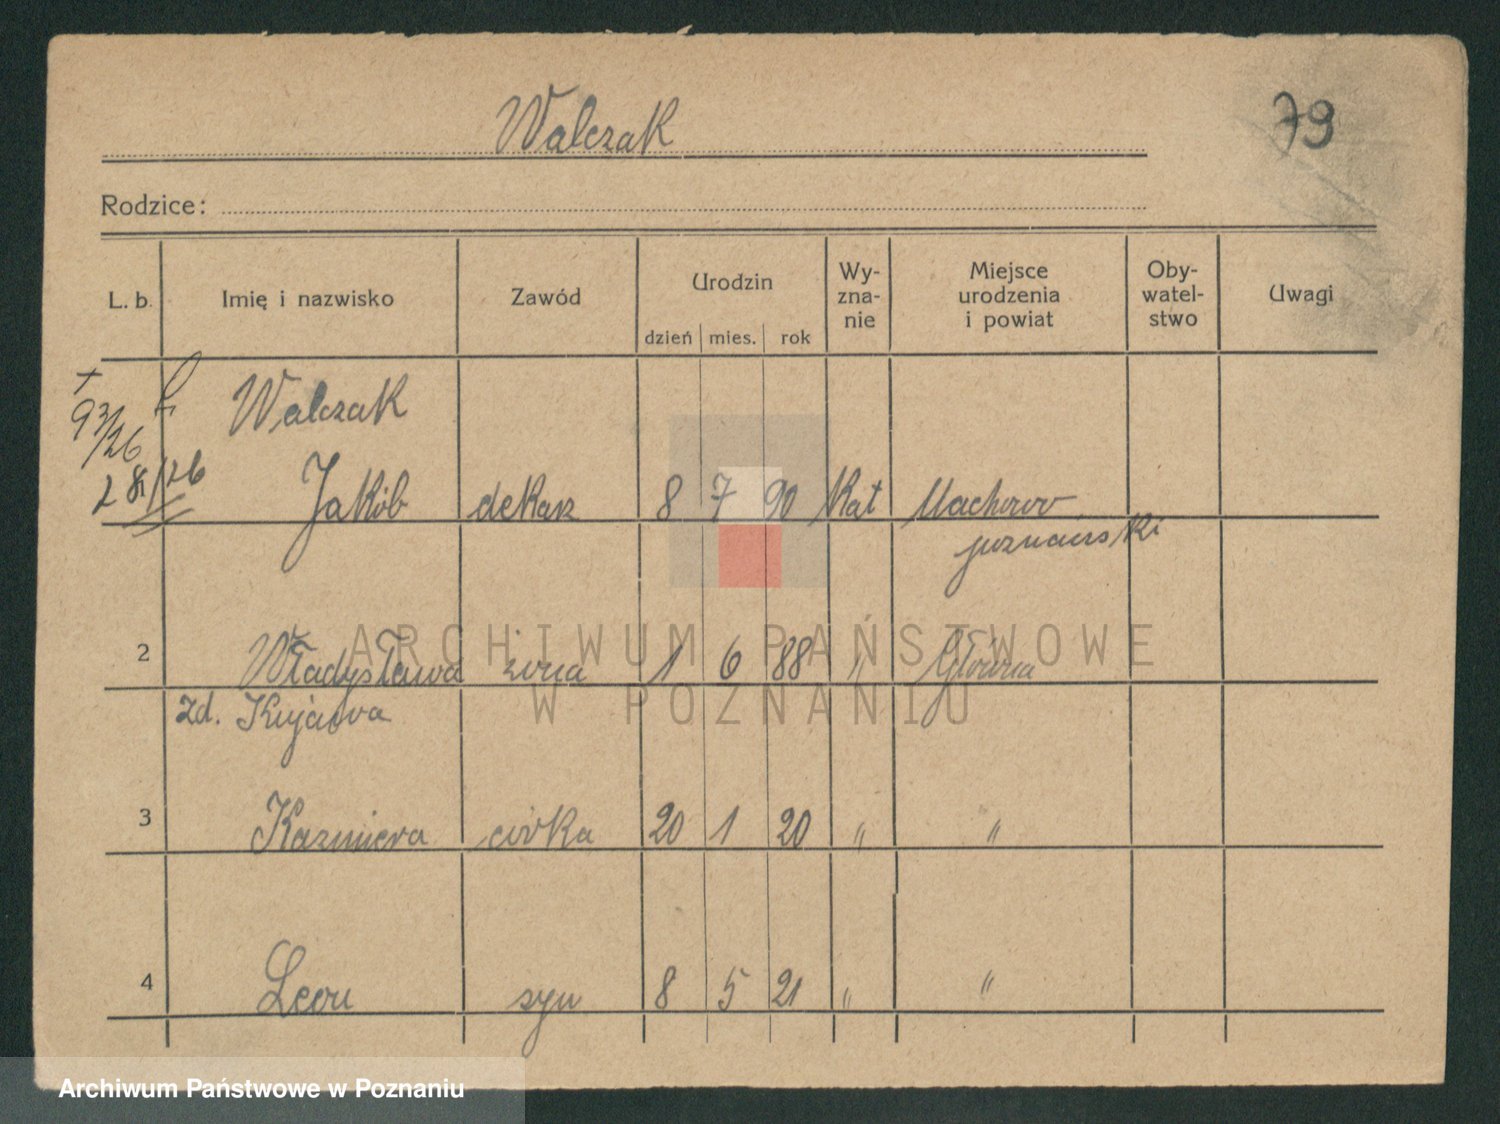 Walczak
79
Rodzice:
L. b. Imię i nazwisko Zawód Urodzin dzień mies. rok Wy-zna-nie Miejsce urodzenia i powiat Oby-watel-stwo Uwagi
† 93/26
Walczak
Jakób dekarz 8 7 90 Kat
poznański
2 Władysława żona 1 6 88 " Główna
zd. Kujawa
3 Kazmiera córka 20 1 20 " "
4 Leon syn 8 5 21 " "
ARCHIWUM PAŃSTWOWE
W POZNANIU
Archiwum Państwowe w Poznaniu